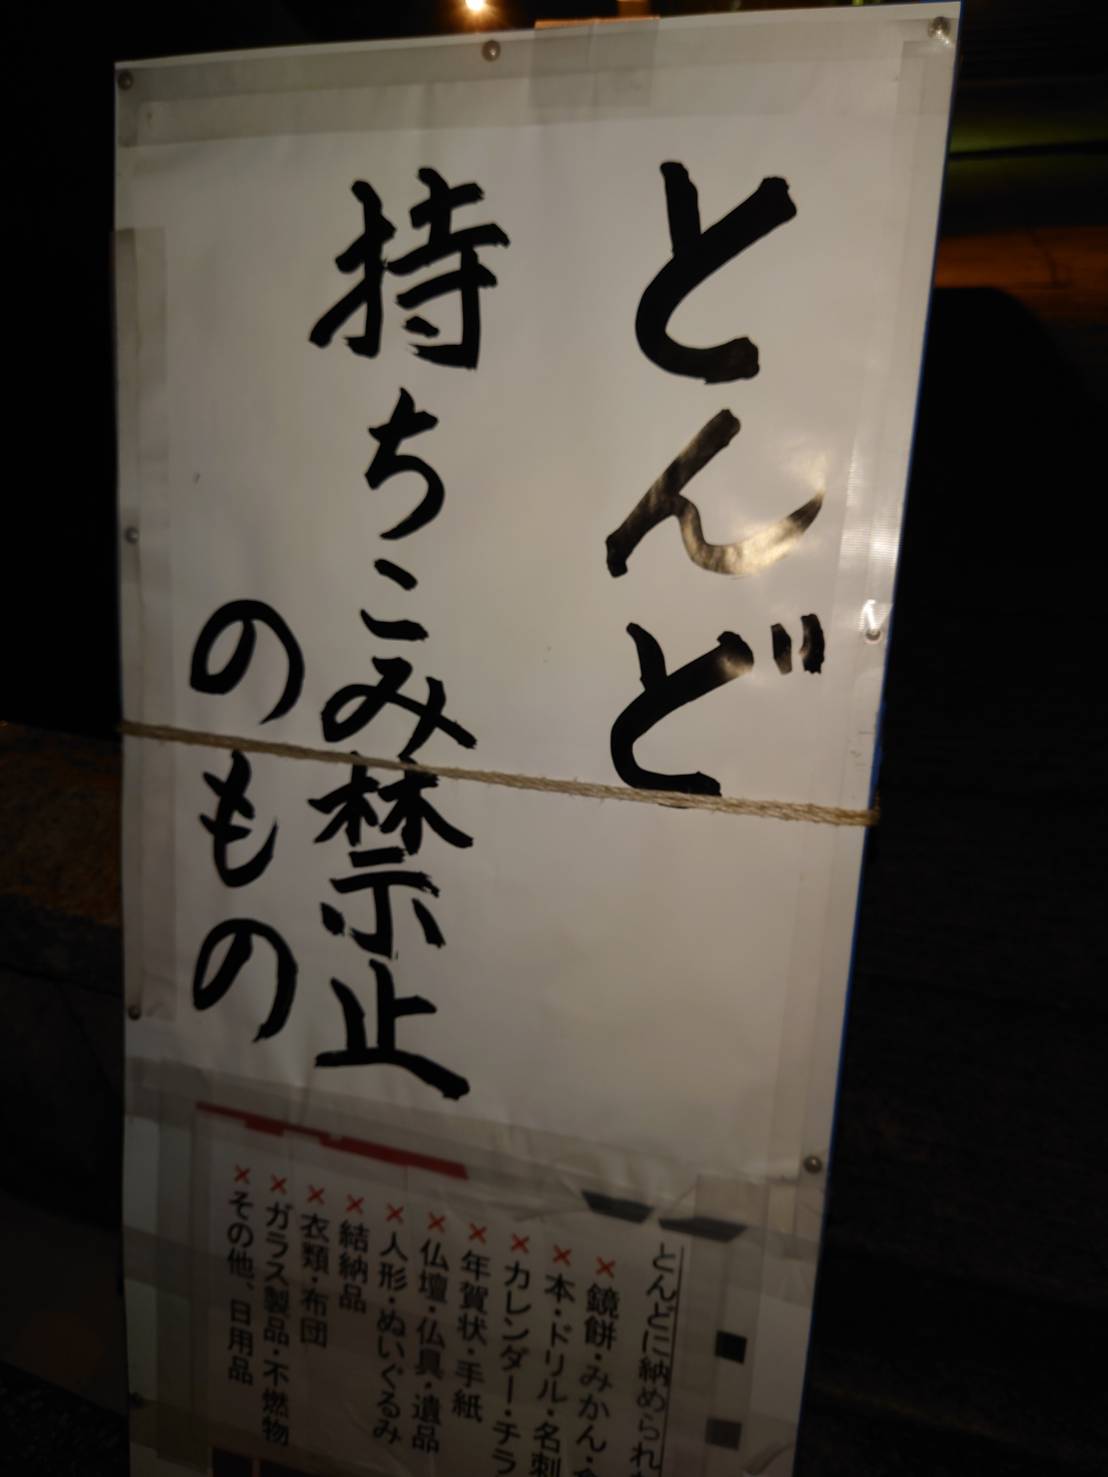 とんど
持ちこみ禁止
のもの
とんどに納められ
×鏡餅・みかん・
×本・ドリル・名刺
×カレンダー・チラ
×年賀状・手紙
×仏壇・仏具・遺品
×人形・ぬいぐるみ
×結納品
×衣類・布団
×ガラス製品・不燃物
×その他、日用品